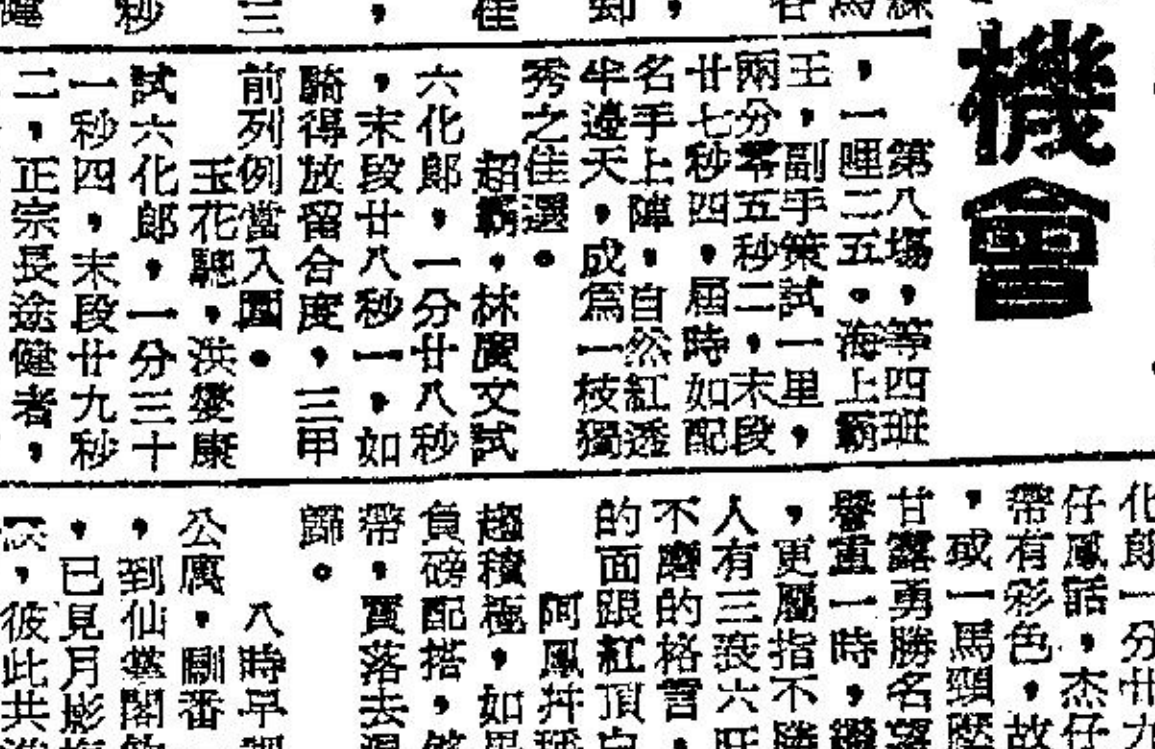 機會
第八場，等四班
，一哩二五。海上霸
王，副手策試一里，
兩分零五秒二，末段
廿七秒四，屆時如配
名手上陣，自然紅透
半邊天，成爲一枝獨
秀之佳選。
超霸，林廣文試
六化郎，一分廿八秒
，末段廿八秒一，如
騎得放留合度，三甲
前列例當入圍。
玉花驄，洪燮康
試六化郎，一分三十
一秒四，末段廿九秒
二，正宗長途健者，
化郎一分卅九
仔鳳話，杰仔
帶有彩色，故
，或一馬頸壓
甘露勇勝名望
譽重一時，讚
，更屬指不勝
人有三衰六旺
不磨的格言，
的面跟紅頂白
阿鳳幷稱
趨積極，如果
負磅配搭，
帶，賣落去
歸。
八時早
公寓，瞓番
，到仙掌閣
，已見月影
，彼此共